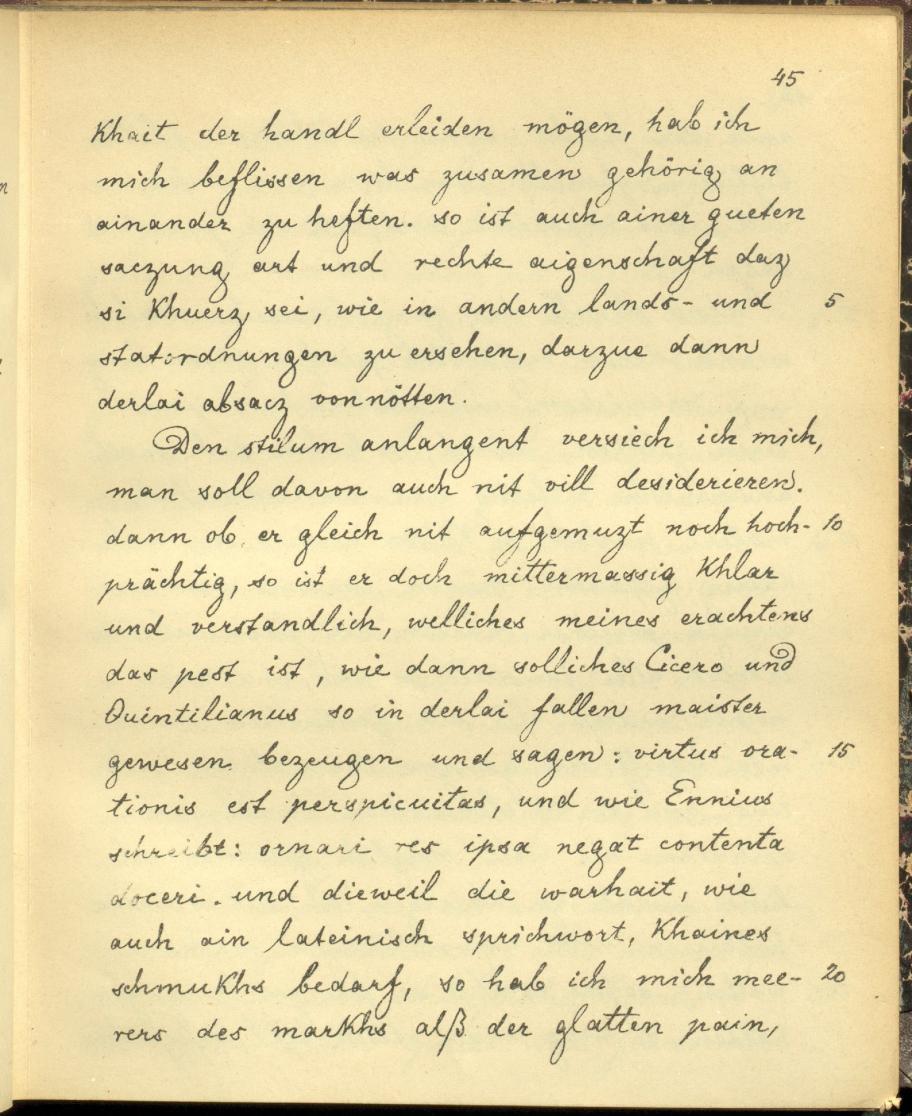 45
Khait der handl erleiden mögen, hab ich
mich beflissen was zusamen gehörig an
ainander zu heften. so ist auch ainer gueten
saczung art und rechte aigenschaft daz
si Khuerz sei, wie in andern lands- und 5
statordnungen zu ersehen, darzue dann
derlai absacz vonnötten.
Den stilum anlangent versiech ich mich,
man soll davon auch nit vill desiderieren.
dann ob er gleich nit aufgemuzt noch hoch- 10
prächtig, so ist er doch mittermassig Khlar
und verstandlich, welliches meines erachtens
das pest ist, wie dann solliches Cicero und
Quintilianus so in derlai fallen maister
gewesen bezeugen und sagen: virtus ora- 15
tionis est perspicuitas, und wie Ennius
schreibt: ornari res ipsa negat contenta
doceri. und dieweil die warhait, wie
auch ain lateinisch sprichwort, Khaines
schmuKhs bedarf, so hab ich mich mee- 20
rers des marKhs alß der glatten pain,